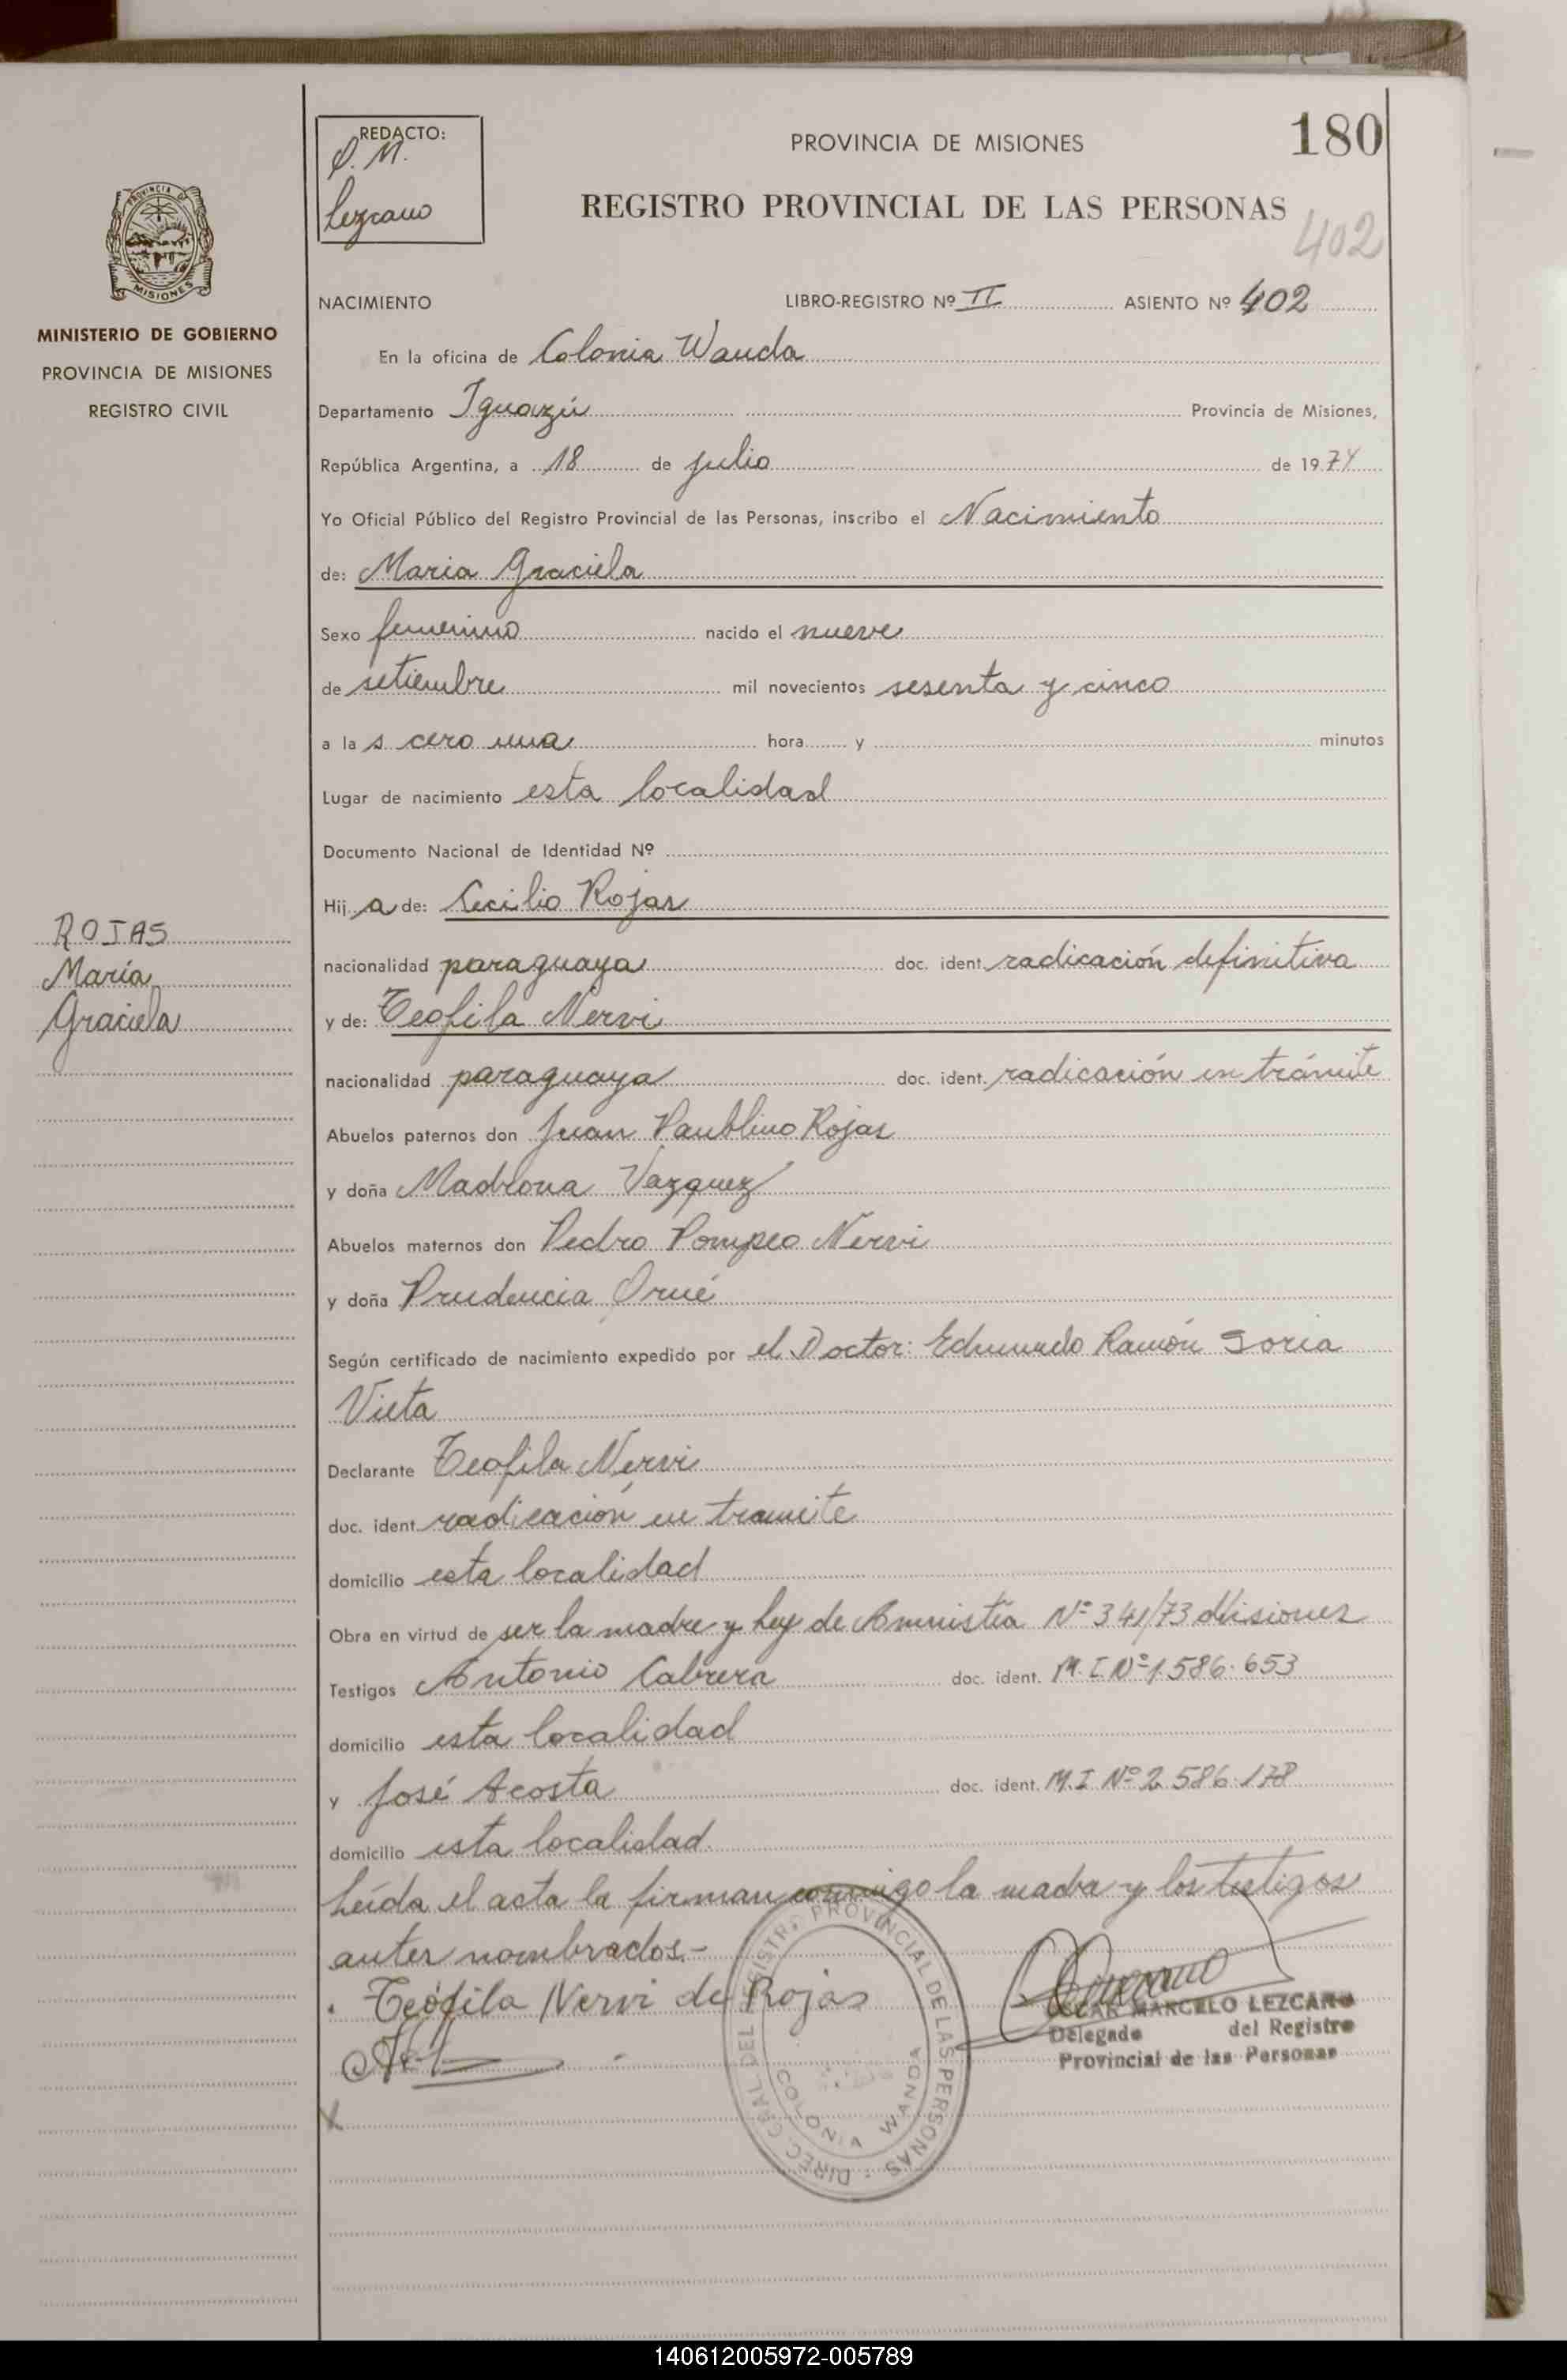 REDACTO:
O. M.
Lezcano
PROVINCIA DE MISIONES
180
REGISTRO PROVINCIAL DE LAS PERSONAS
402
PROVINCIA DE
MISIONES
MINISTERIO DE GOBIERNO
PROVINCIA DE MISIONES
REGISTRO CIVIL
NACIMIENTO LIBRO-REGISTRO Nº II ASIENTO Nº 402
En la oficina de Colonia Wanda
Departamento Iguazú Provincia de Misiones,
República Argentina, a 18 de julio de 1974
Yo Oficial Público del Registro Provincial de las Personas, inscribo el Nacimiento
de: Maria Graciela
Sexo femenino nacido el nueve
de setiembre mil novecientos sesenta y cinco
a la s cero una hora y minutos
Lugar de nacimiento esta localidad
Documento Nacional de Identidad Nº
Hij a de: Cecilio Rojas
ROJAS
María
Graciela
nacionalidad paraguaya doc. ident. radicación definitiva
y de: Teofila Nervi
nacionalidad paraguaya doc. ident. radicación en trámite
Abuelos paternos don Juan Paublino Rojas
y doña Madrona Vazquez
Abuelos maternos don Pedro Pompeo Nervi
y doña Prudencia Orué
Según certificado de nacimiento expedido por el Doctor: Edmundo Ramón Soria
Vieta
Declarante Teofila Nervi
doc. ident. radicación en tramite
domicilio esta localidad
Obra en virtud de ser la madre y Ley de Amnistía Nº 341/73 Misiones
Testigos Antonio Cabrera doc. ident. M.I. Nº 1.586.653
domicilio esta localidad
y José Acosta doc. ident. M.I Nº 2.586.178
domicilio esta localidad.
Leída el acta la firman conmigo la madre y los testigos
antes nombrados.-
Teófila Nervi de Rojas
OSCAR MARCELO LEZCANO
Delegado del Registro
Provincial de las Personas
DIREC. GRAL DEL REGISTRO PROVINCIAL DE LAS PERSONAS
COLONIA WANDA
140612005972-005789